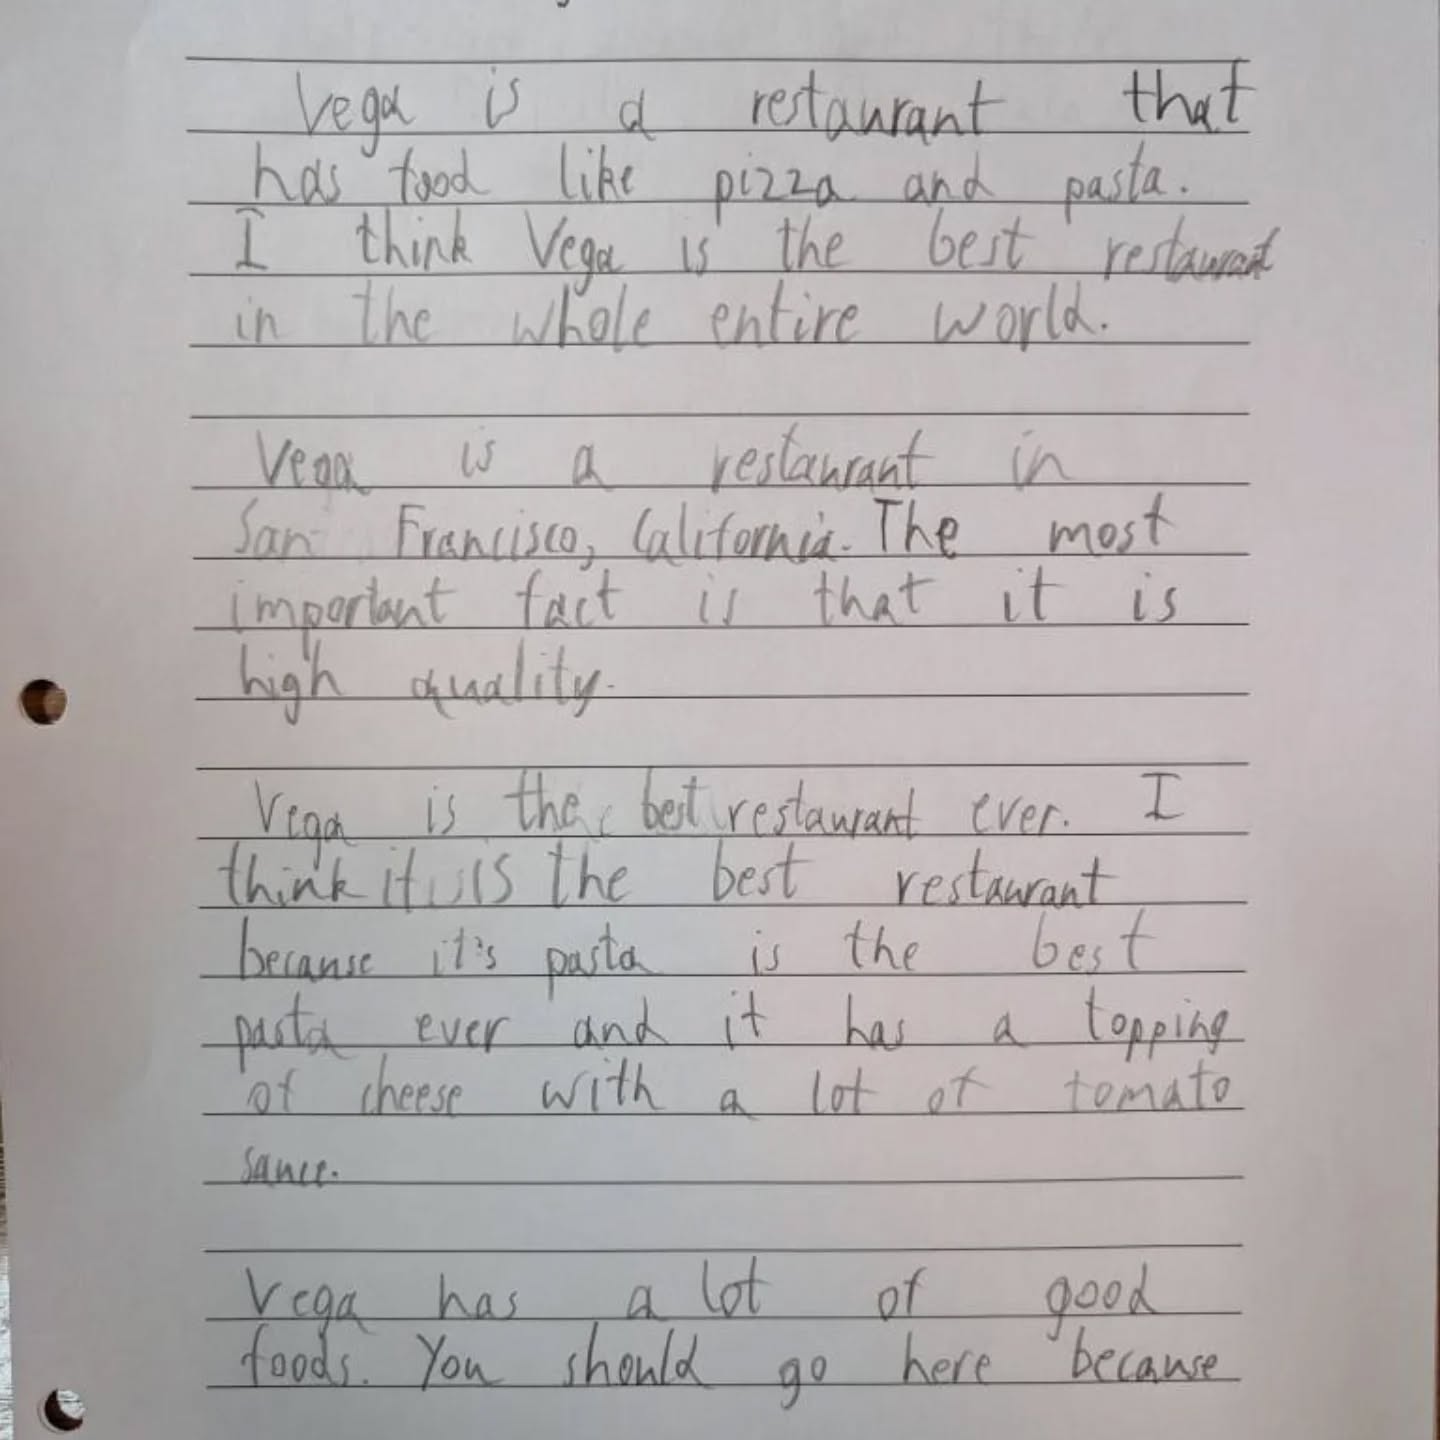 Vega is a restaurant that
has food like pizza and pasta.
I think Vega is the best restaurant
in the whole entire world.
Vega is a restaurant in
San Francisco, California. The most
important fact is that it is
high quality.
Vega is the best restaurant ever. I
think it is the best restaurant
because it's pasta is the best
pasta ever and it has a topping
of cheese with a lot of tomato
sauce.
Vega has a lot of good
foods. You should go here because